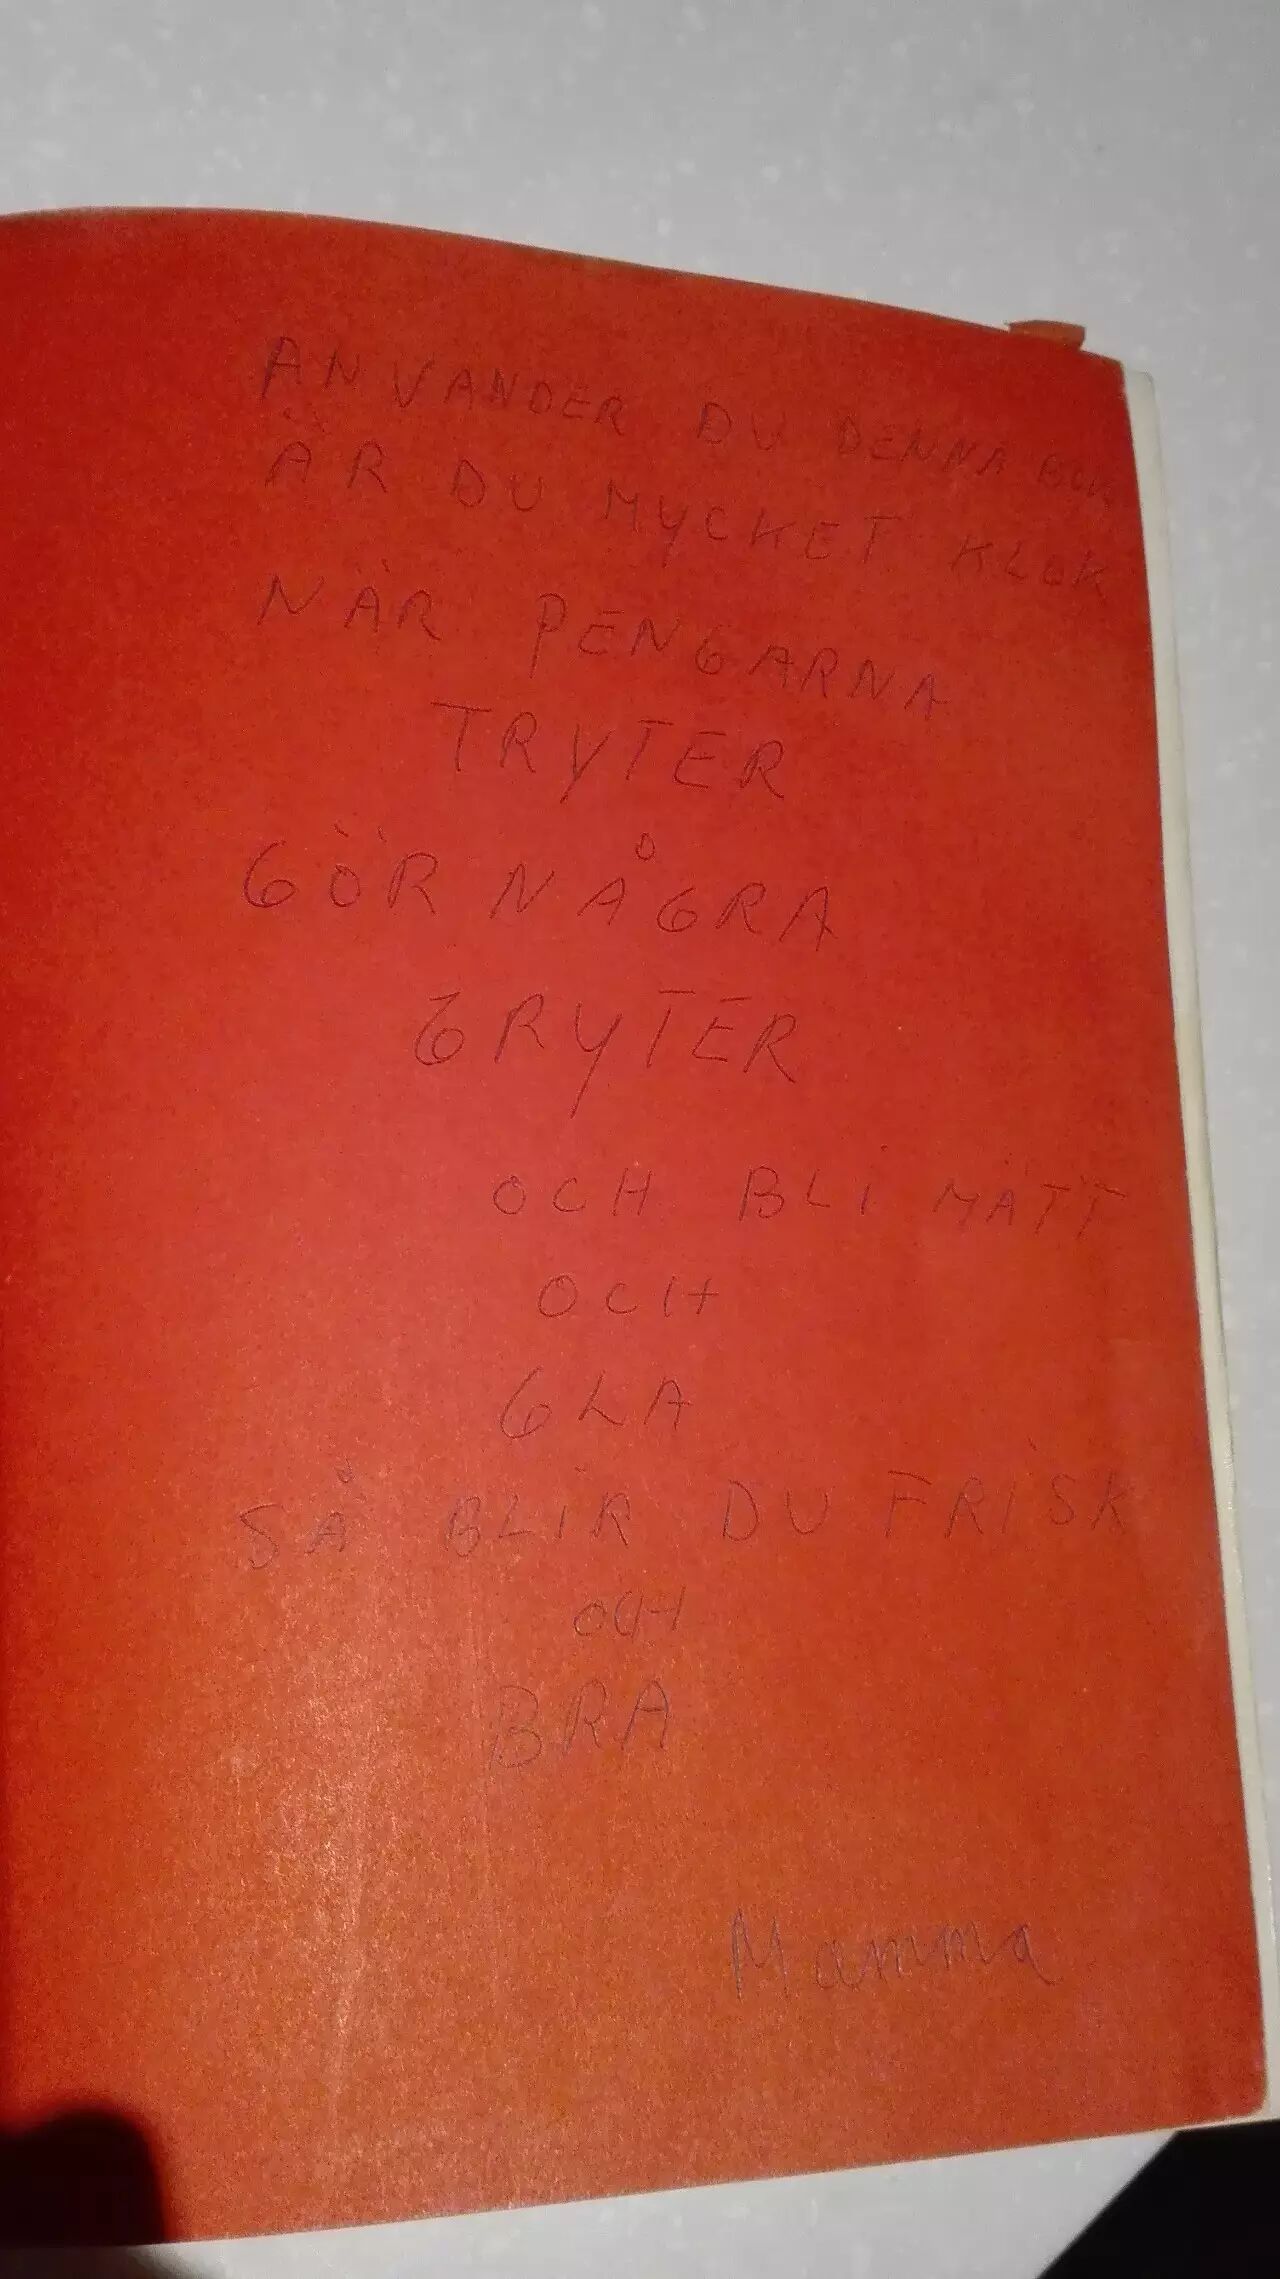 ANVANDER DU DENNA BOK
ÄR DU MYCKET KLOK
NÄR PENGARNA
TRYTER
GÖR NÅGRA
GRYTER
OCH BLI MÄTT
OCH
GLA
SÅ BLIR DU FRISK
OCH
BRA
Mamma